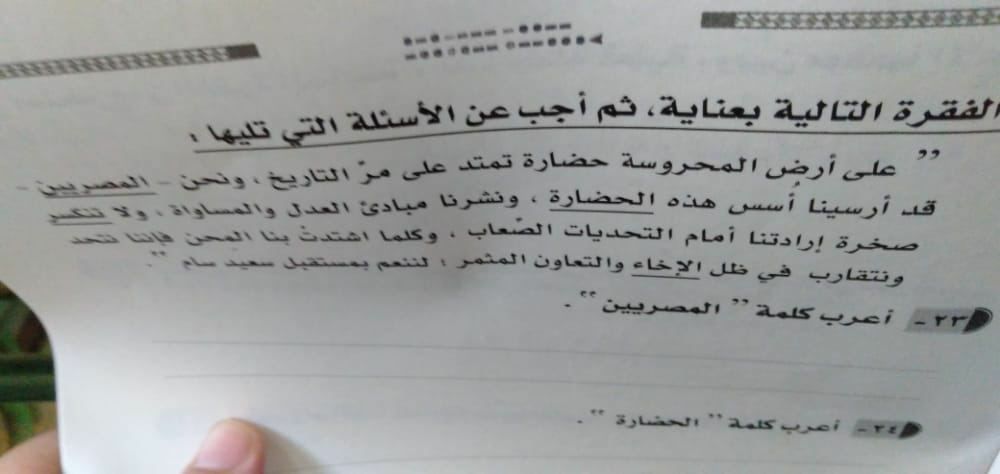 الفقرة التالية بعناية، ثم أجب عن الأسئلة التي تليها :
” على أرض المحروسة حضارة تمتد على مرّ التاريخ ، ونحن - المصريين -
قد أرسينا أسس هذه الحضارة ، ونشرنا مبادئ العدل والمساواة ، ولا تنكسر
صخرة إرادتنا أمام التحديات الصّعاب ، وكلما اشتدتْ بنا المحن فإننا نتحد
ونتقارب في ظل الإخاء والتعاون المثمر ؛ لننعم بمستقبل سعيد سام “.
٢٣- أعرب كلمة ” المصريين “ .
٢٤- أعرب كلمة ” الحضارة “ .